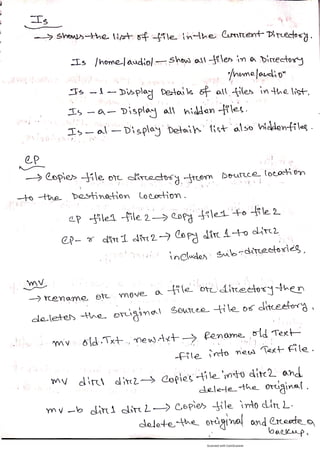 Is
→ shows the list of file in the Current Directory.
Is /home/audio/ — Show all files in a Directory
"/home/audio"
Is – 1 – Display Details of all files in the list.
Is – a – Display all hidden files.
Is – al – Display Details list also hidden files.
CP
→ Copies file or directory from source location
to the Destination Location.
cp file1 file2 → Copy file1 to file2
cp – r dir1 dir2 → Copy dir1 to dir2
includes sub-directories.
mv
→ rename or move a file or directory then
deletes the original source file or directory.
mv old.txt . new.txt → Rename old Text
File into new Text File.
mv dir1 dir2 → Copies file into dir2 and
delete the original.
mv – b dir1 dir2 → Copies file into dir2.
delete the original and create a
backup.